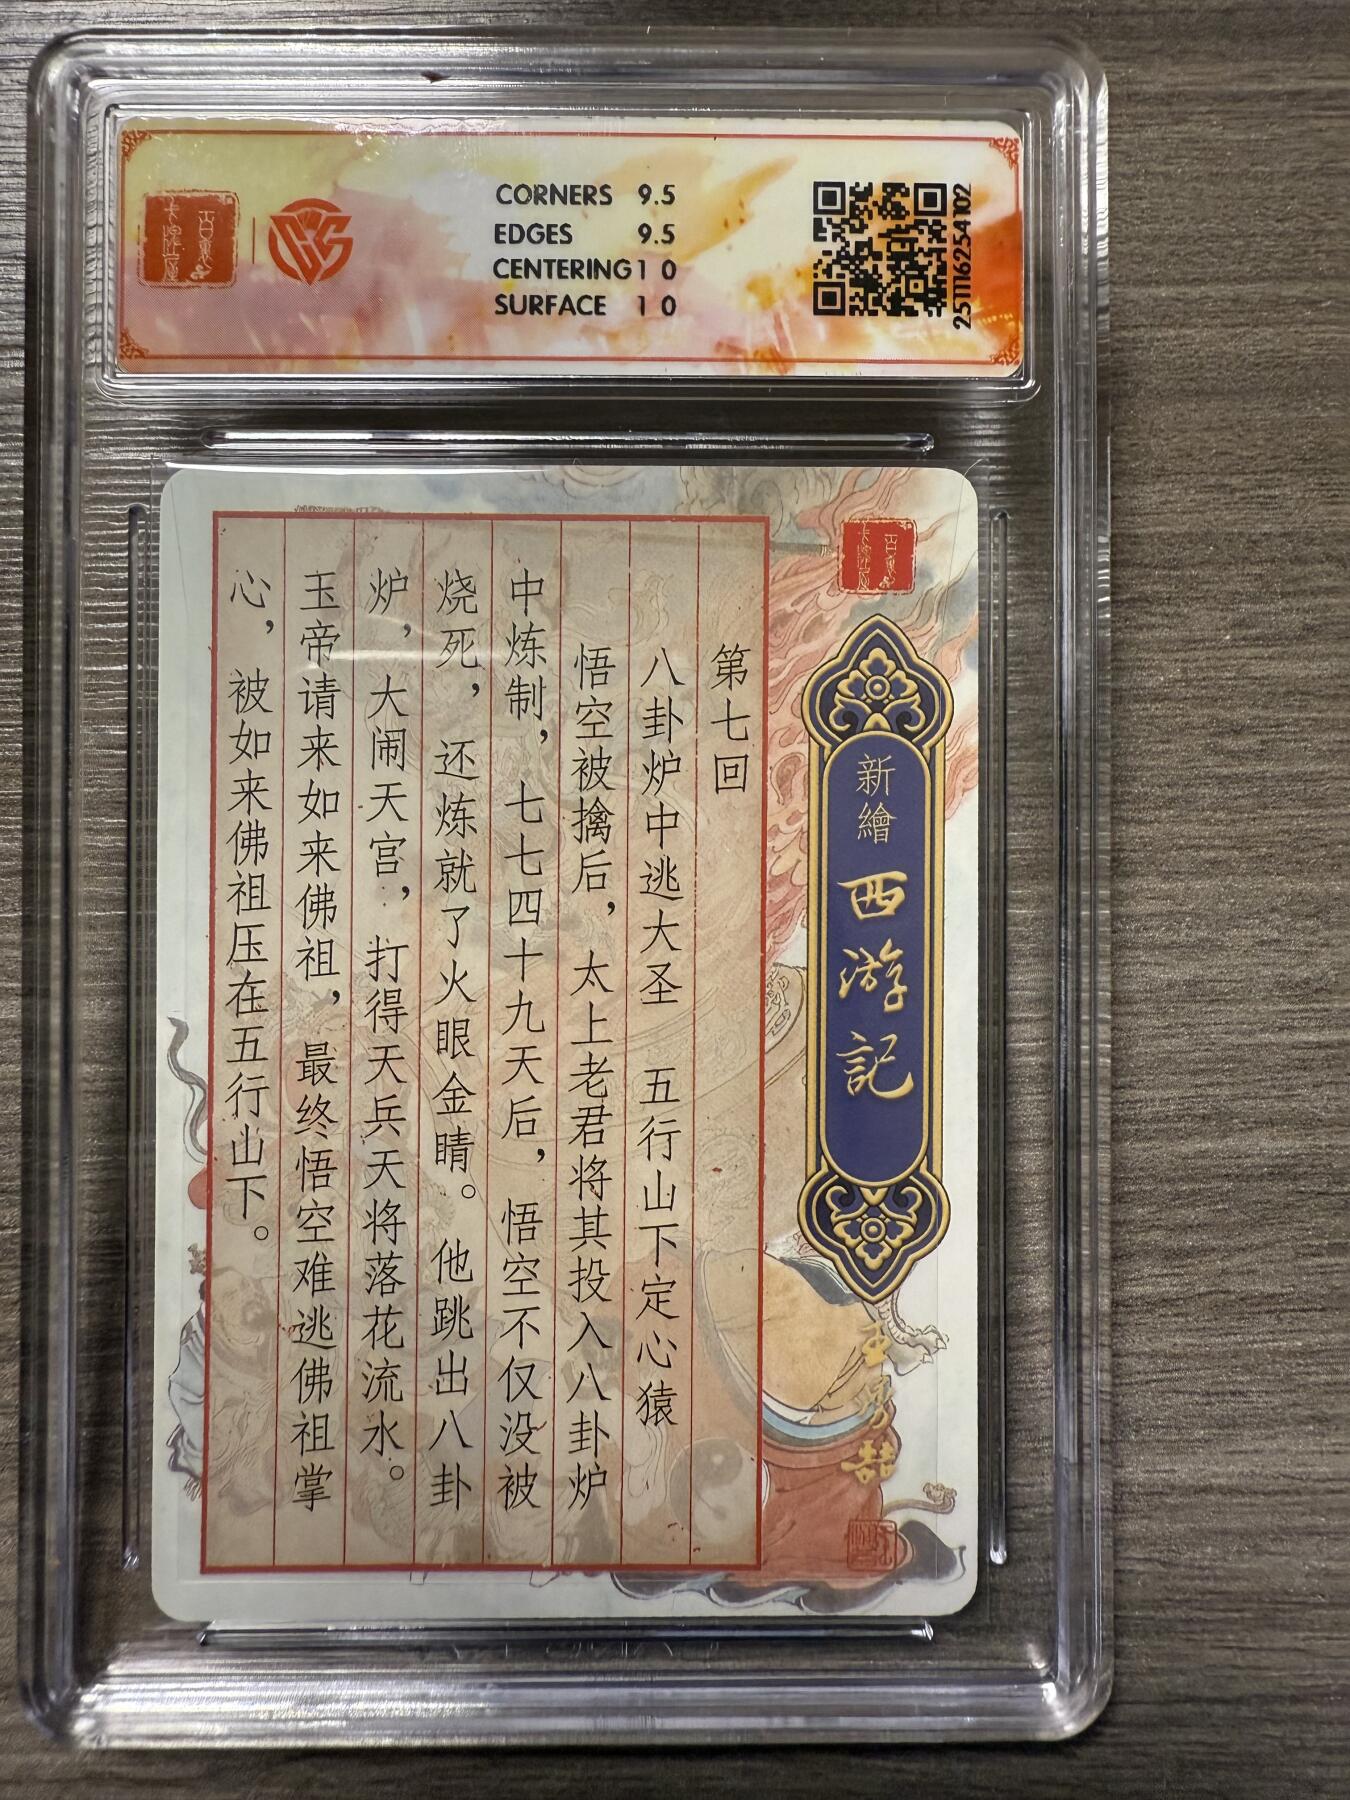 CORNERS 9.5
EDGES 9.5
CENTERING 10
SURFACE 10
251116254102
新繪 西游記
第七回
八卦炉中逃大圣 五行山下定心猿
悟空被擒后，太上老君将其投入八卦炉
中炼制，七七四十九天后，悟空不仅没被
烧死，还炼就了火眼金睛。他跳出八卦
炉，大闹天宫，打得天兵天将落花流水。
玉帝请来如来佛祖，最终悟空难逃佛祖掌
心，被如来佛祖压在五行山下。